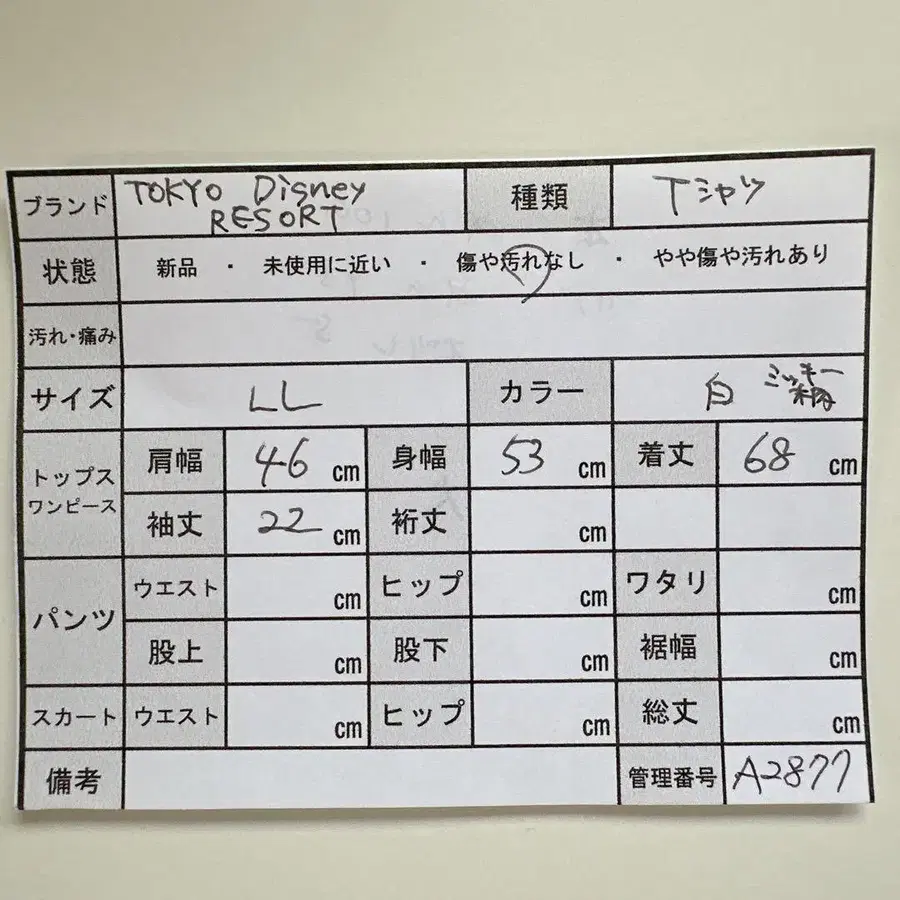 ブランド TOKYO Disney RESORT 種類 Tシャツ
状態 新品 ・ 未使用に近い ・ 傷や汚れなし ・ やや傷や汚れあり
汚れ・痛み
サイズ LL カラー 白 ミッキー柄
トップス ワンピース 肩幅 46 cm 身幅 53 cm 着丈 68 cm
袖丈 22 cm 裄丈 cm
パンツ ウエスト cm ヒップ cm ワタリ cm
股上 cm 股下 cm 裾幅 cm
スカート ウエスト cm ヒップ cm 総丈 cm
備考 管理番号 A2877